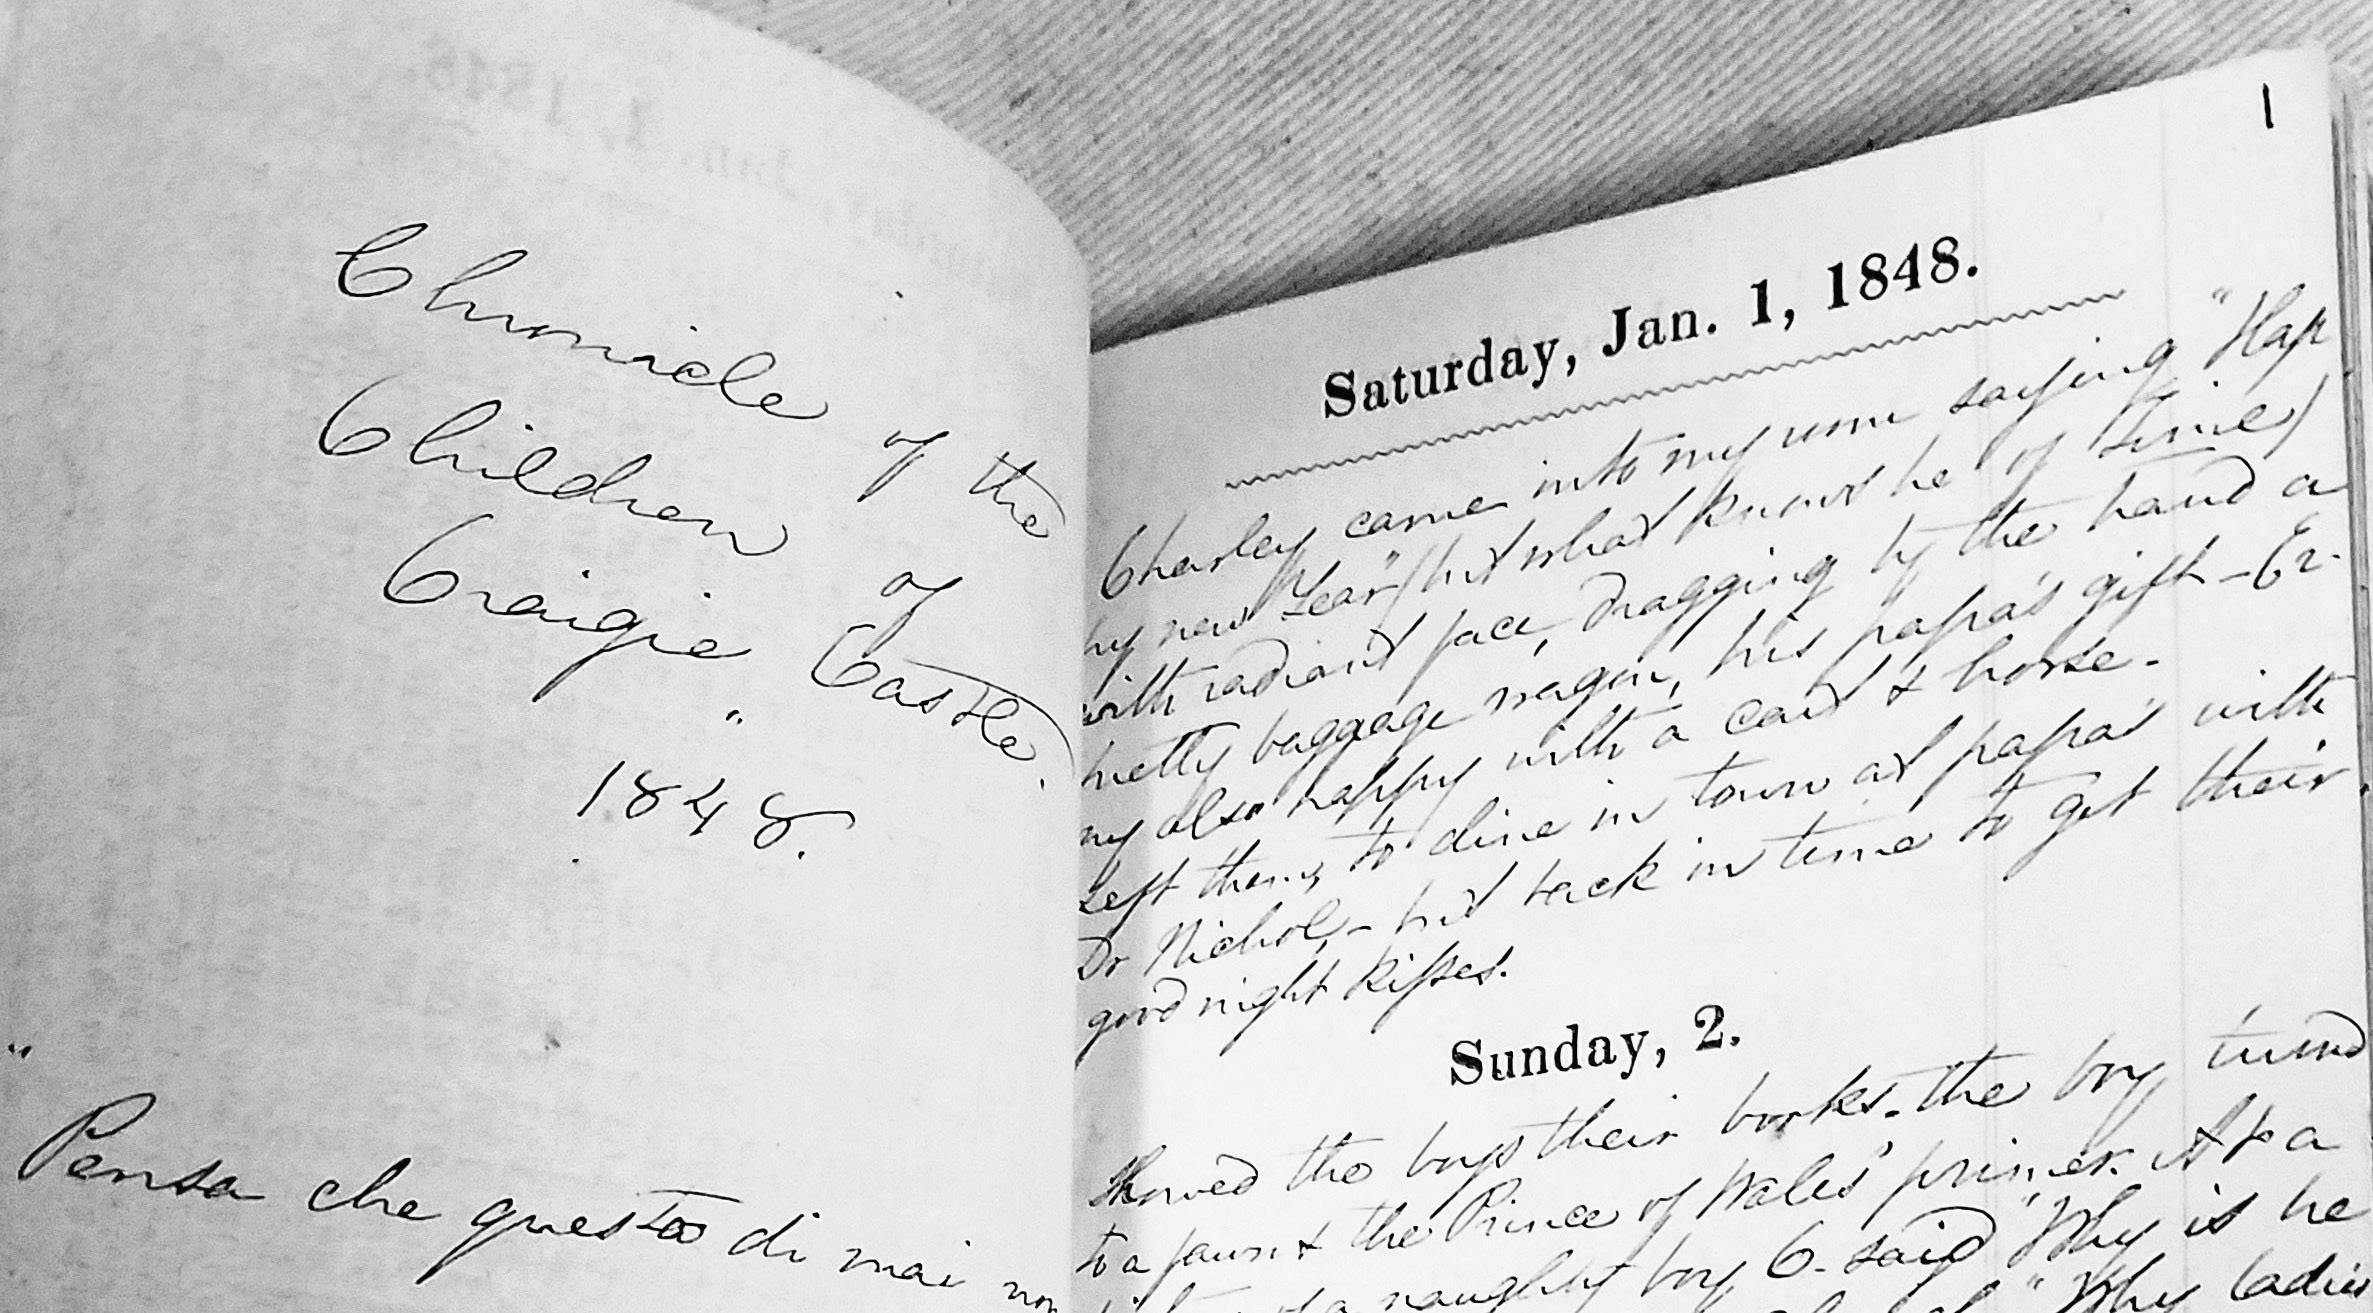 Chronicle of the
Children of
Craigie Castle.
1848.
"Pensa che questo di mai non
1
Saturday, Jan. 1, 1848.
Charley came into my room saying "Hap
py new Year" (but what knows he of time)
with radiant face, dragging by the hand a
pretty baggage wagon, his papa's gift - Er-
ny also happy with a cart & horse.
Left them, to dine in town at papa's with
Dr Nichol, - but back in time to get their
good night kisses.
Sunday, 2.
Showed the boys their books. the boy turned
to a fawn & the Prince of Wales' primer. At a
naughty boy C. said "Why is he
"Why ladies